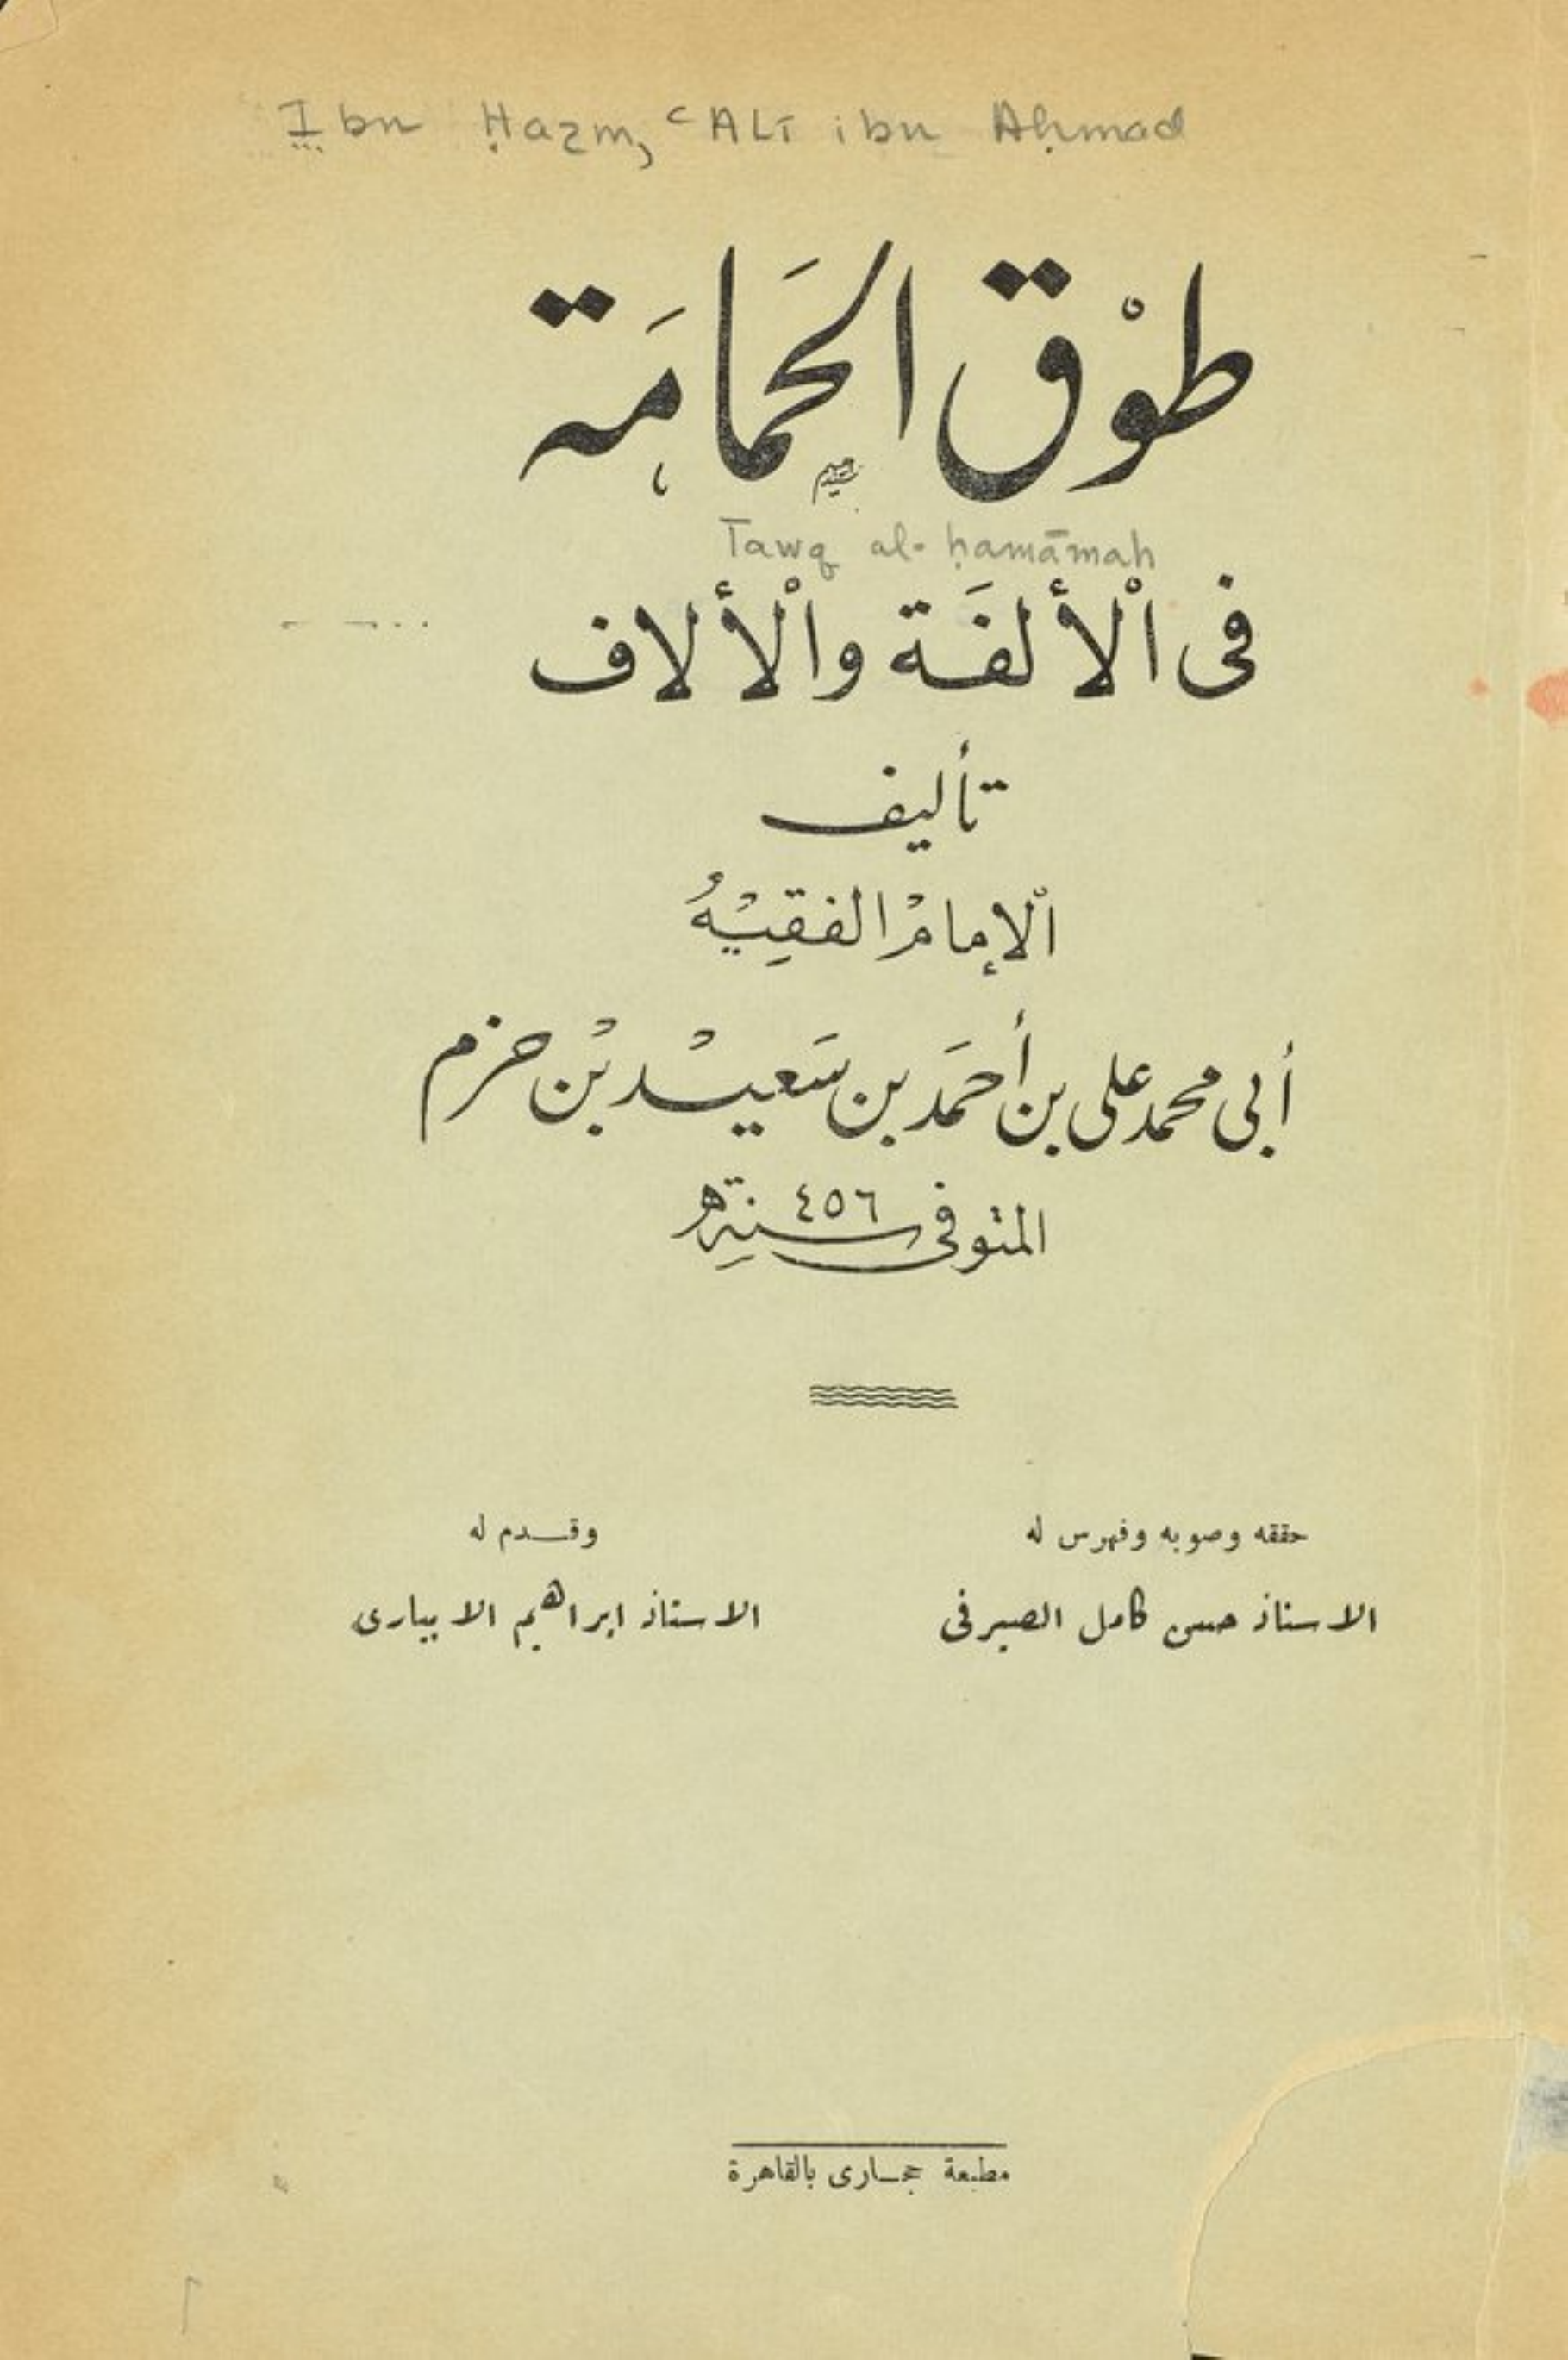 Ibn Ḥazm, ʿAlī ibn Aḥmad
طوْق الحَمامَة
Tawq al-ḥamāmah
فى اْلأُلفَة واْلأُلاف
تأليف
اْلإمامْ الفقِيْهُ
أبى محمد على بن أحمَد بن سَعيْد بْن حزم
المتوفى سنة ٤٥٦ ه
حققه وصوبه وفهرس له
الاستاذ حسن كامل الصيرفى
وقـدم له
الاستاذ ابراهيم الابيارى
مطبعة حجازى بالقاهرة